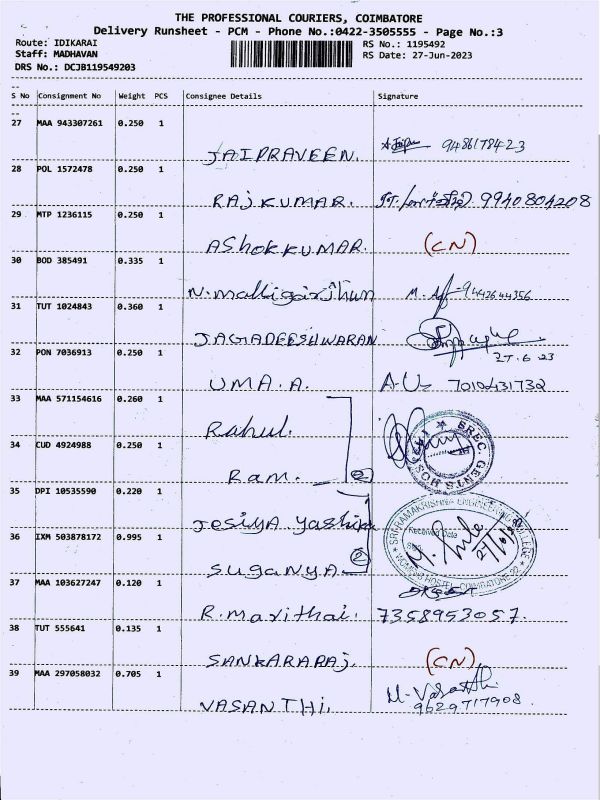 THE PROFESSIONAL COURIERS, COIMBATORE
Delivery Runsheet - PCM - Phone No.:0422-3505555 - Page No.:3
Route: IDIKARAI RS No.: 1195492
Staff: MADHAVAN RS Date: 27-Jun-2023
DRS No.: DCJB119549203
S No Consignment No Weight PCS Consignee Details Signature
27 MAA 943307261 0.250 1
JAIPRAVEEN. 9486178423
28 POL 1572478 0.250 1
RAJKUMAR. 9940804208
29 MTP 1236115 0.250 1
ASHOKKUMAR. (CN)
30 BOD 385491 0.335 1
N. Malligairjhun 9442644356
31 TUT 1024843 0.360 1
JAGADEESHWARAN 27.6.23
32 PON 7036913 0.250 1
UMA.A. A.U 7010431732
33 MAA 571154616 0.260 1
Rahul.
34 CUD 4924988 0.250 1
Ram. 2
SREC. GENTS HOS
35 DPI 10535590 0.220 1
Jesiya
36 IXM 503878172 0.995 1
SUGANYA 2
SRI RAMAKRISHNA ENGINEERING COLLEGE
Received Date
WOMENS HOSTEL-COIMBATORE-22
37 MAA 103627247 0.120 1
R. Marithai. 7358953057.
38 TUT 555641 0.135 1
SANKARARAJ. (CN)
39 MAA 297058032 0.705 1
VASANTHI. M. Vasanthi
9629717908